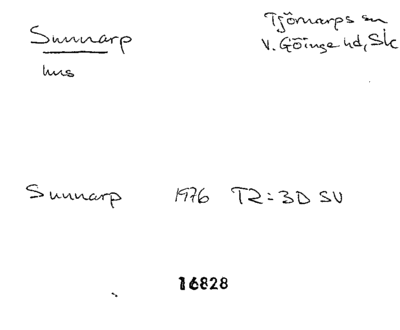 Sunnarp
Tjörnarps sn
V. Göinge hd, Sk
hus
Sunnarp 1976 TR=3D SV
16828